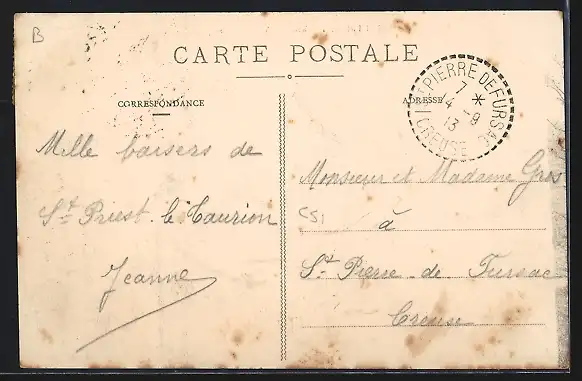 B
CARTE POSTALE
CORRESPONDANCE
ADRESSE
St PIERRE DE FURSAC
7 *
14 -9
13
CREUSE
Mille baisers de
St Priest. le Taurion
Jeanne
Monsieur et Madame Gros
CSI
à
St Pierre. de Fursac
Creuse